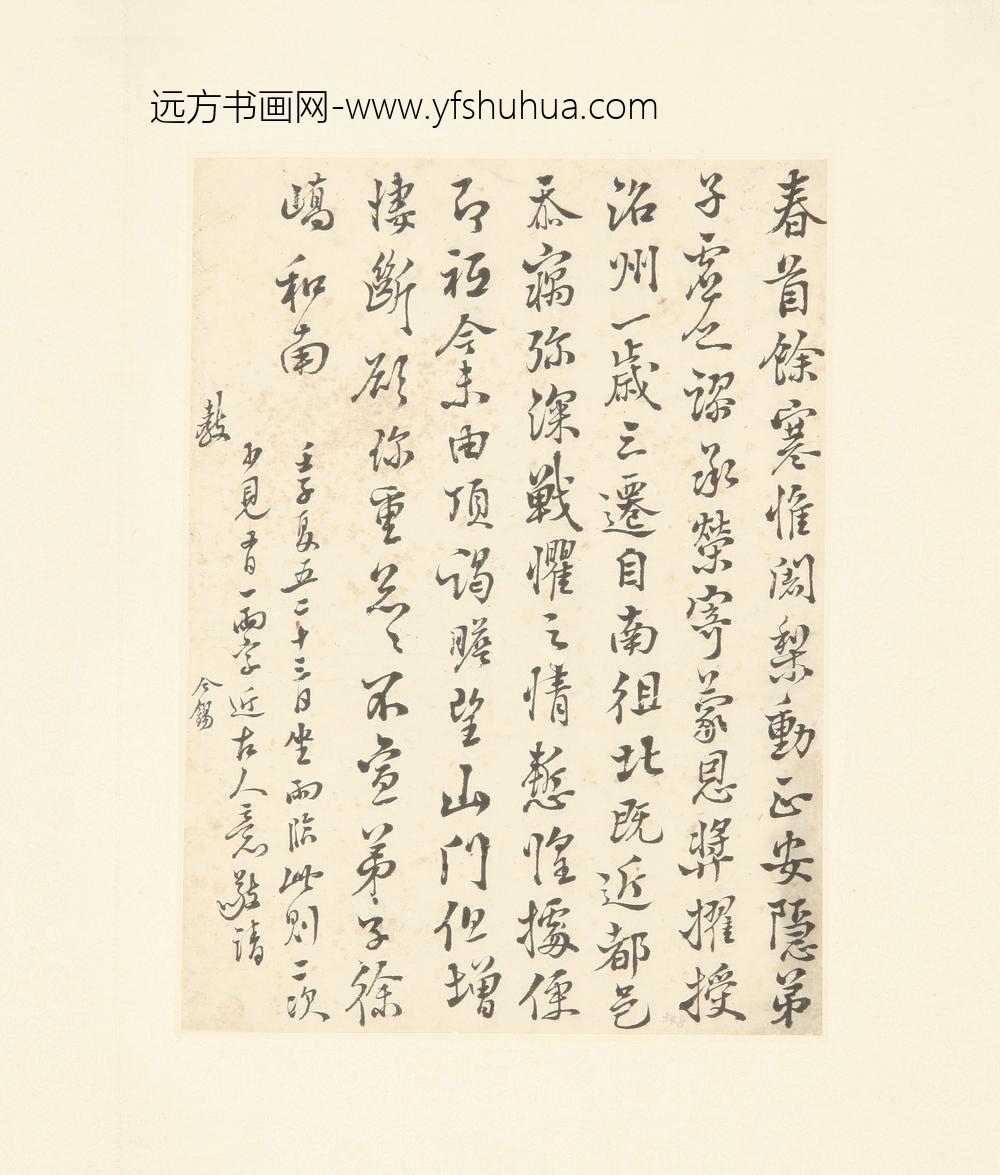 远方书画网-www.yfshuhua.com
春首餘寒惟闍梨動止安隱弟
子虛乏謬承榮寄蒙恩獎擢授
洺州一歲三遷自南徂北既近都邑
忝竊弥深戰懼之情慙惶據便
即祗命未由頂謁瞻望山門但增
悽斷願珍重忩々不宣弟子徐
嶠和南
壬子夏五二十三日坐雨臨此則二次
不見有一兩字近古人意敬請
教